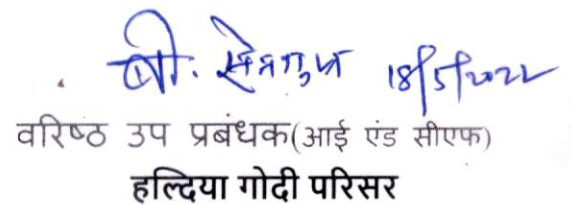 बी. सेनगुप्त 18/5/2022
वरिष्ठ उप प्रबंधक(आई एंड सीएफ)
हल्दिया गोदी परिसर